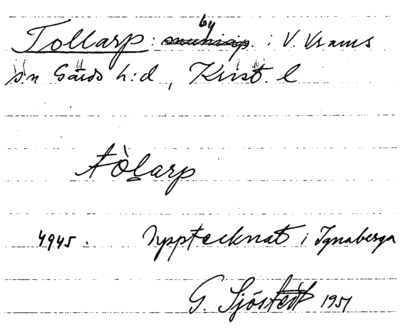 Tollarp by i V. Vrams
sn Gärds h:d, Krist. l
tòlarp
4945. Upptecknat i Ignaberga
G. Sjöstedt 1951